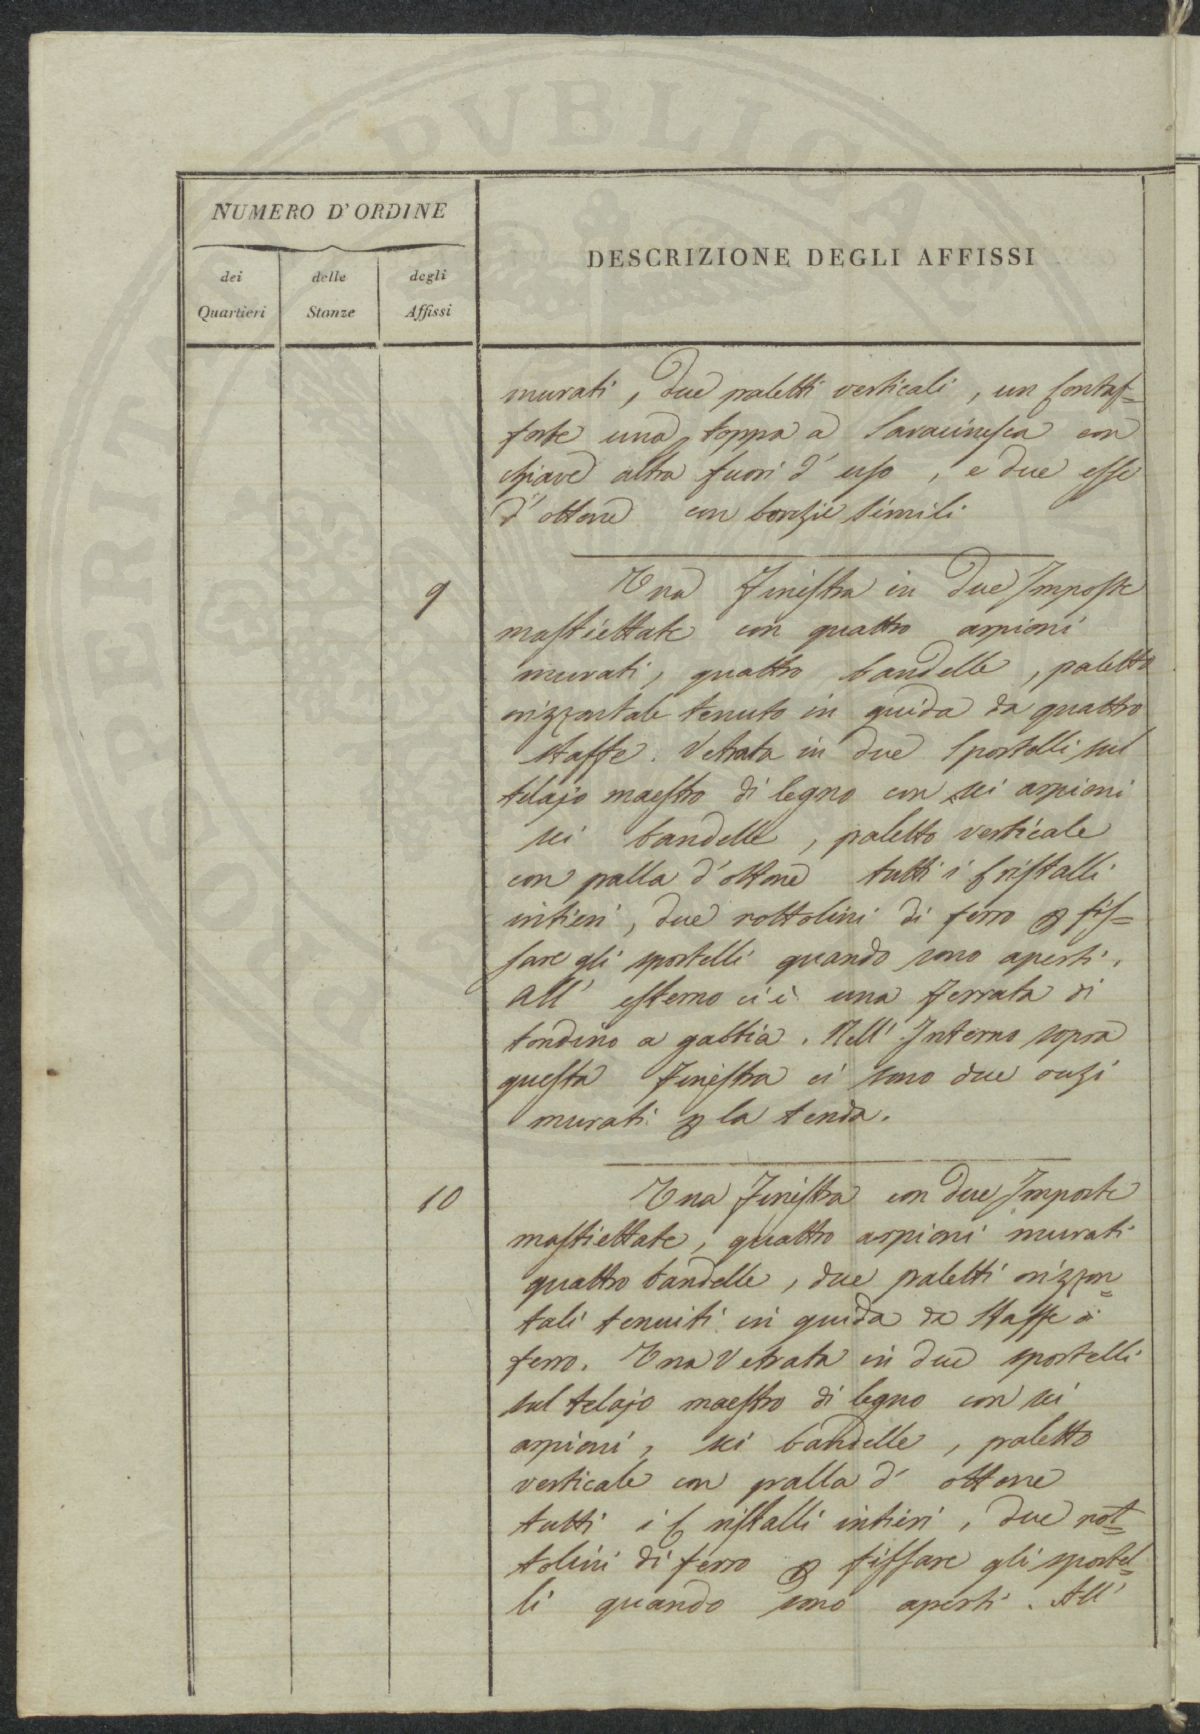 NUMERO D' ORDINE
DESCRIZIONE DEGLI AFFISSI
dei Quartieri
delle Stanze
degli Affissi
murati, due paletti verticali, un Contraf=
forte una toppa a Saracinesca con
chiave altra fuori d' uso, e due esse
d' ottone con borchie simili
9 Una Finestra in due Imposte
mastiettate con quattro arpioni
murati, quattro bandelle, paletto
orizzontale tenuto in guida da quattro
staffe. Vetrata in due Sportelli sul
telajo maestro di legno con sei arpioni
sei bandelle, paletto verticale
con palla d' ottone tutti i Cristalli
intieri, due nottolini di ferro p fis=
sare gli sportelli quando sono aperti.
All' esterno ci è una Ferrata di
tondino a gabbia. Nell' Interno sopra
questa Finestra ci sono due
murati p la tenda.
10 Una Finestra con due Imposte
mastiettate, quattro arpioni murati
quattro bandelle, due paletti orizzon=
tali tenuti in guida da staffe di
ferro. Una Vetrata in due sportelli
sul telajo maestro di legno con sei
arpioni, sei bandelle, paletto
verticale con palla d' ottone
tutti i Cristalli intieri, due not=
tolini di ferro p fissare gli sportel=
li quando sono aperti. All'